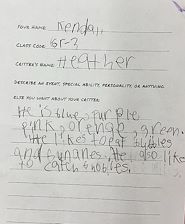 YOUR NAME: Kendall
CLASS CODE: Gr-3
CRITTER'S NAME: Heather
DESCRIBE AN EVENT, SPECIAL ABILITY, PERSONALITY, OR ANYTHING
ELSE YOU WANT ABOUT YOUR CRITTER:
He is blue, purple
pink, orenge, green.
He likes to eat
and He also like
to catch